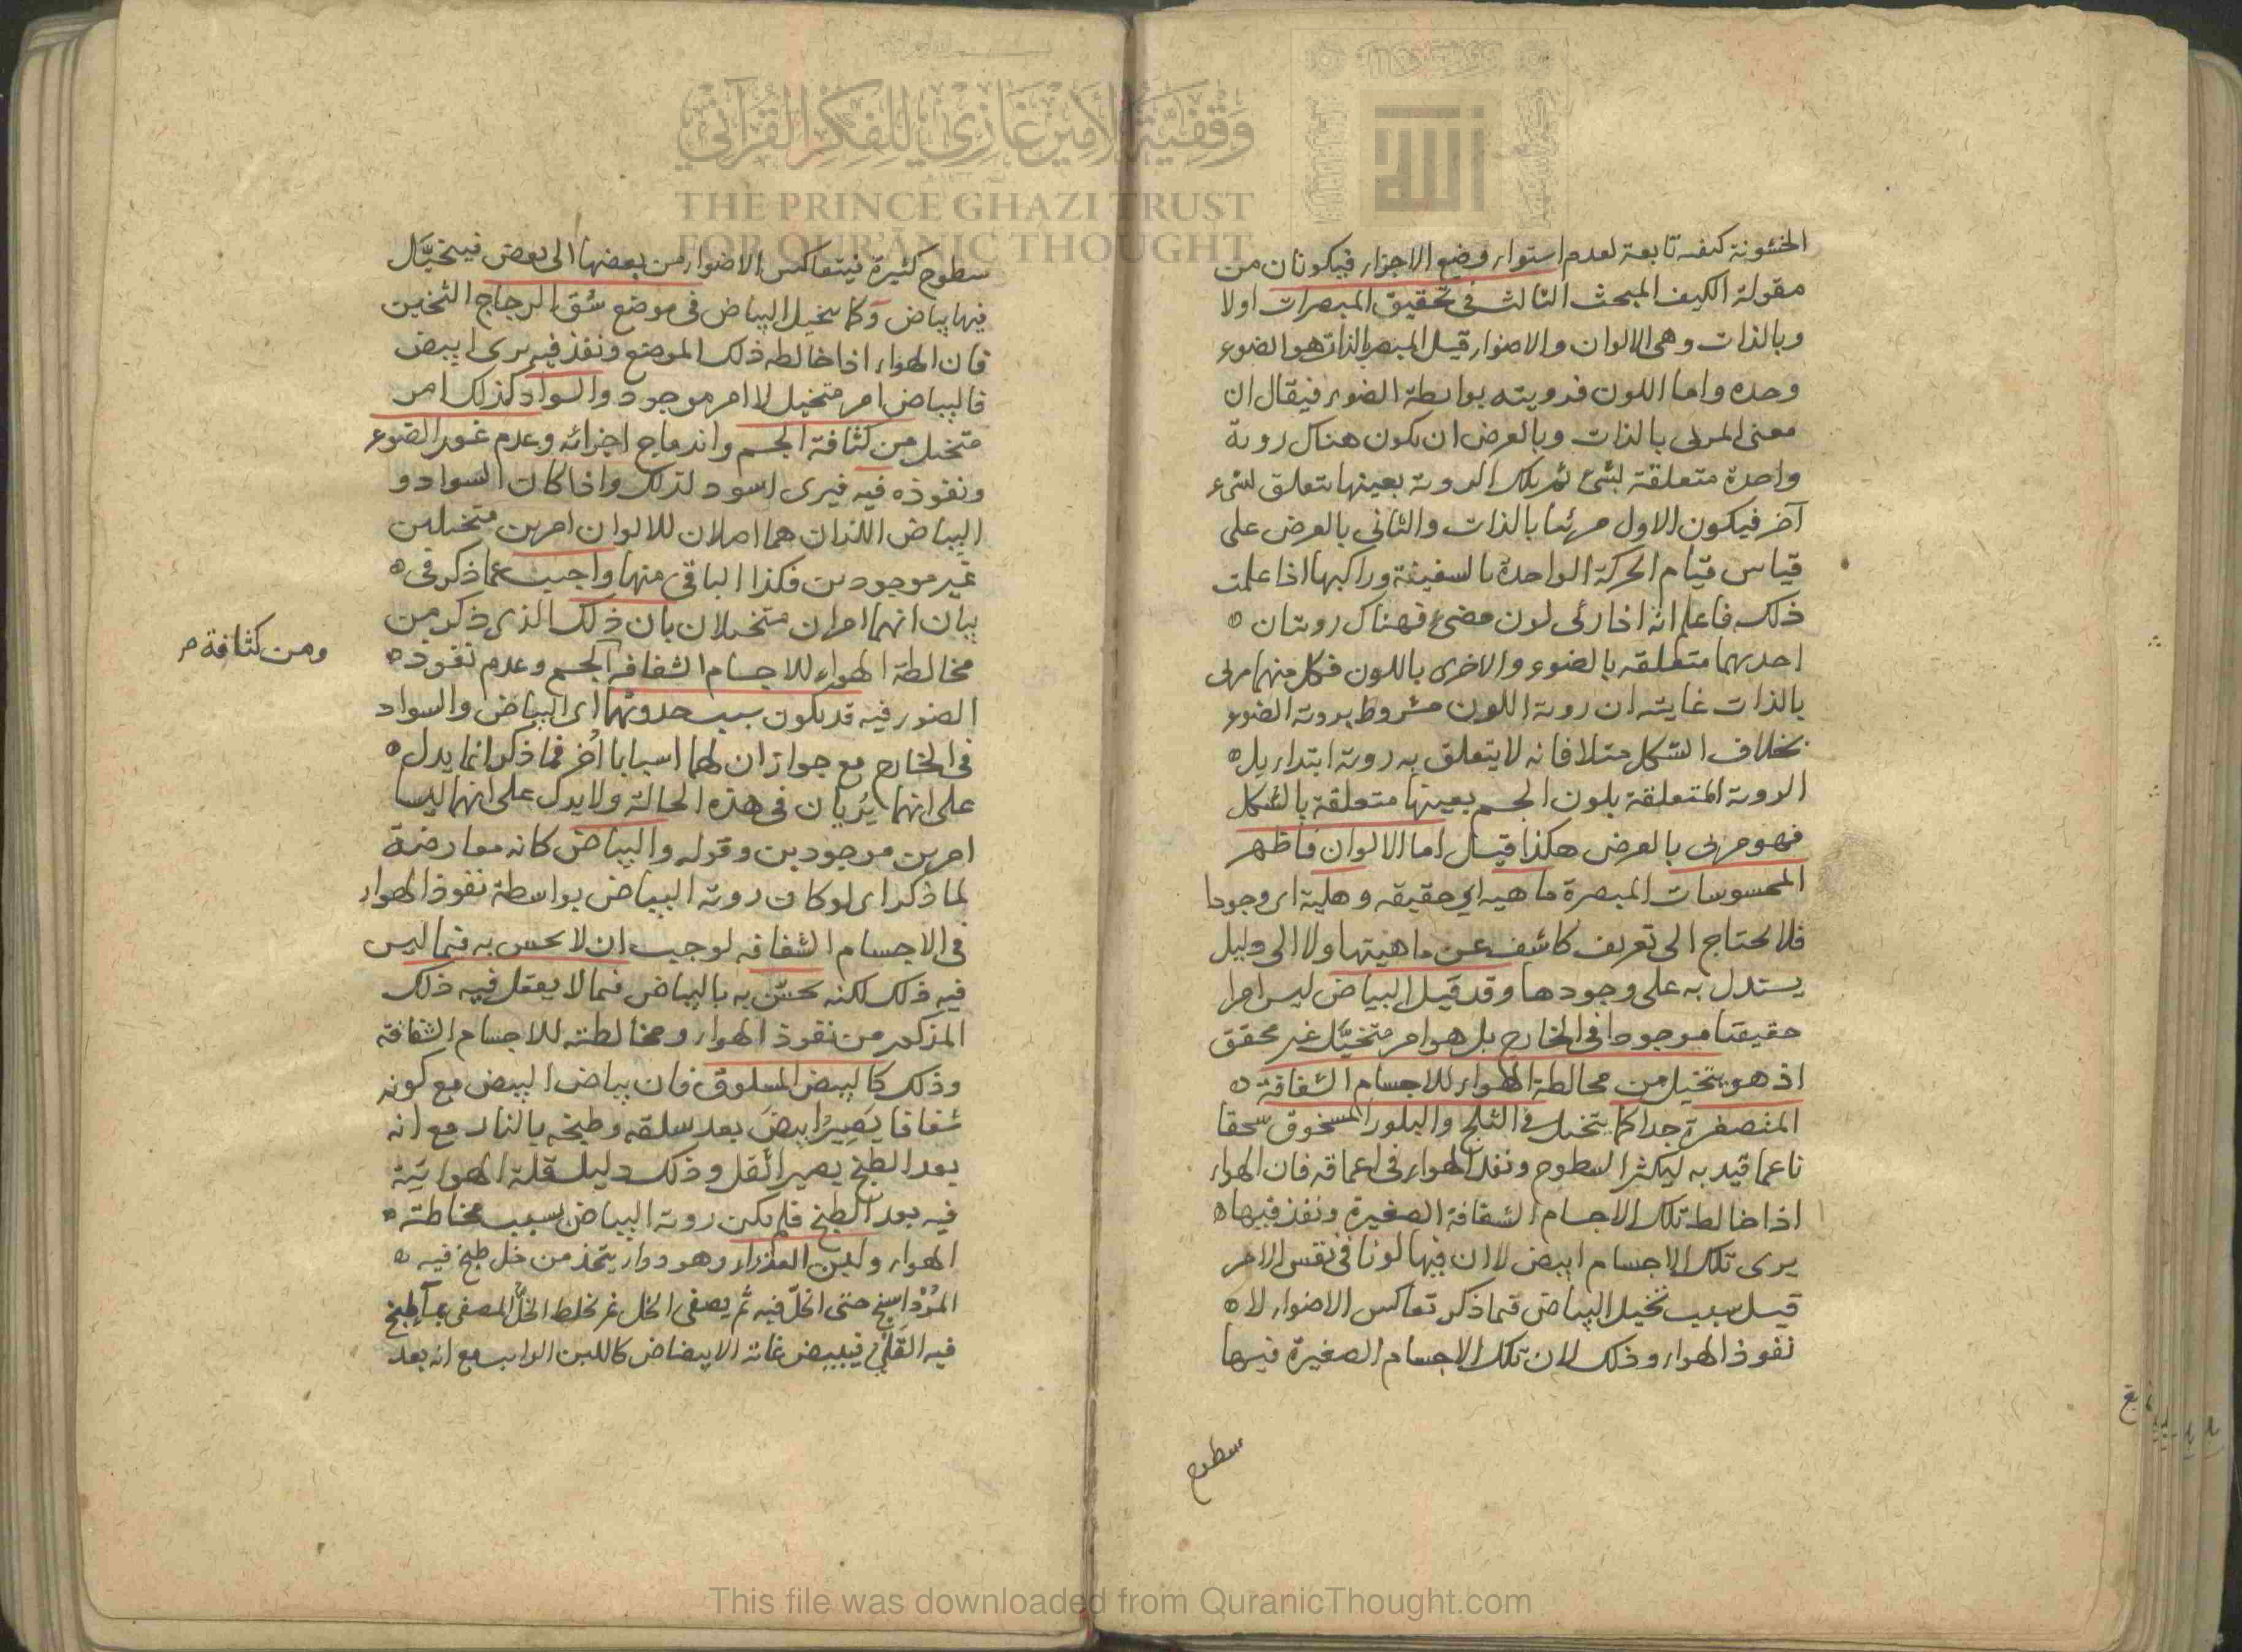 وقفية الأمير غازي للفكر القرآني
THE PRINCE GHAZI TRUST
FOR QURʾĀNIC THOUGHT
الله
الخشونة كيفية تابعة لعدم استواء وضع الاجزاء فيكونان من
مقولة الكيف المبحث الثالث في تحقيق المبصرات اولا
وبالذات وهي الالوان والاضواء قيل المبصر بالذات هو الضوء
وحده واما اللون فرويته بواسطة الضوء فيقال ان
معنى المرئي بالذات وبالعرض ان يكون هناك روية
واحدة متعلقة بشئ ثم تلك الروية بعينها تتعلق بشئ
آخر فيكون الاول مرئيا بالذات والثاني بالعرض على
قياس قيام الحركة الواحدة بالسفينة وراكبها اذا علمت
ذلك فاعلم انه اذا رئى لون مضئ فهناك رويتان
احديهما متعلقه بالضوء والاخرى باللون فكل منهما مرئى
بالذات غايته ان روية اللون مشروط بروية الضوء
بخلاف الشكل مثلا فانه لا يتعلق به روية ابتداء بل
الروية المتعلقة بلون الجسم بعينها متعلقة بالشكل
فهو مرئى بالعرض هكذا قيل اما الالوان فاظهر
المحسوسات المبصرة ماهيه اي حقيقه وهلية اى وجودا
فلا يحتاج الى تعريف كاشف عن ماهيتها ولا الى دليل
يستدل به على وجودها وقد قيل البياض ليس امرا
حقيقيا موجودا في الخارج بل هو امر متخيّل غير محقق
اذ هو يتخيل من مخالطة الهواء للاجسام الشفافة
المتصغرة جدا كما يتخيل في الثلج والبلور المسحوق سحقا
ناعما قيد به ليكثر السطوح ونفذ الهواء في اعماقه فان الهواء
اذا خالط تلك الاجسام الشفافة الصغيرة ونفذ فيها
يرى تلك الاجسام ابيض لا ان فيها لونا في نفس الامر
قيل سبب تخيل البياض فيما ذكر تعاكس الاضواء لا
نفوذ الهواء وذلك لان تلك الاجسام الصغيرة فيها
سطوح
سطوح كثيرة فيتعاكس الاضواء من بعضها الى بعض فيتخيّل
فيها بياض وكما يتخيل البياض في موضع شق الزجاج الثخين
فان الهواء اذا خالطه ذلك الموضع ونفذ فيه يرى ابيض
فالبياض امر متخيل لا امر موجود والسواد كذلك امر
متخيل من كثافة الجسم واندماج اجزائه وعدم غور الضوء
ونفوذه فيه فيرى اسود لذلك واذا كان السواد و
البياض اللذان هما اصلان للالوان امرين متخيلين
غير موجودين فكذا الباقي منها واجيب عما ذكر في
بيان انهما امران متخيلان بان ذلك الذي ذكر من
مخالطة الهواء للاجسام الشفافه الجسم وعدم نفوذ
ومن كثافة
الضوء فيه قد يكون سبب حدوثهما اى البياض والسواد
في الخارج مع جواز ان لهما اسبابا اُخر فما ذكر انما يدل
على انهما يُريان في هذه الحالة ولا يدل على انهما ليسا
امرين موجودين وقوله والبياض كانه معارضة
لما ذكر اى لو كان روية البياض بواسطة نفوذ الهواء
في الاجسام الشفافه لوجب ان لا يحس به فيما ليس
فيه ذلك لكنه يحسّ به بالبياض فيما لا يعقل فيه ذلك
المذكور من نفوذ الهواء ومخالطته للاجسام الشفافه
وذلك كالبيض المسلوق فان بياض البيض مع كونه
شفافا يَصِيرُ ابيضَ بعد سلقه وطبخه بالنار مع انه
بعد الطبخ يصير اثقل وذلك دليل قلة الهوائية
فيه بعد الطبخ فلم يكن روية البياض بسبب مخالطة
الهواء ولبن العذراء وهو دواء يتخذ من خل طبخ فيه
المرداسنج حتى انحلّ فيه ثم يصفى الخل ثم يخلط الخلّ المصفى بماء طبخ
فيه القلي فيبيض غاية الابيضاض كاللبن الرايب مع انه بعد
This file was downloaded from QuranicThought.com